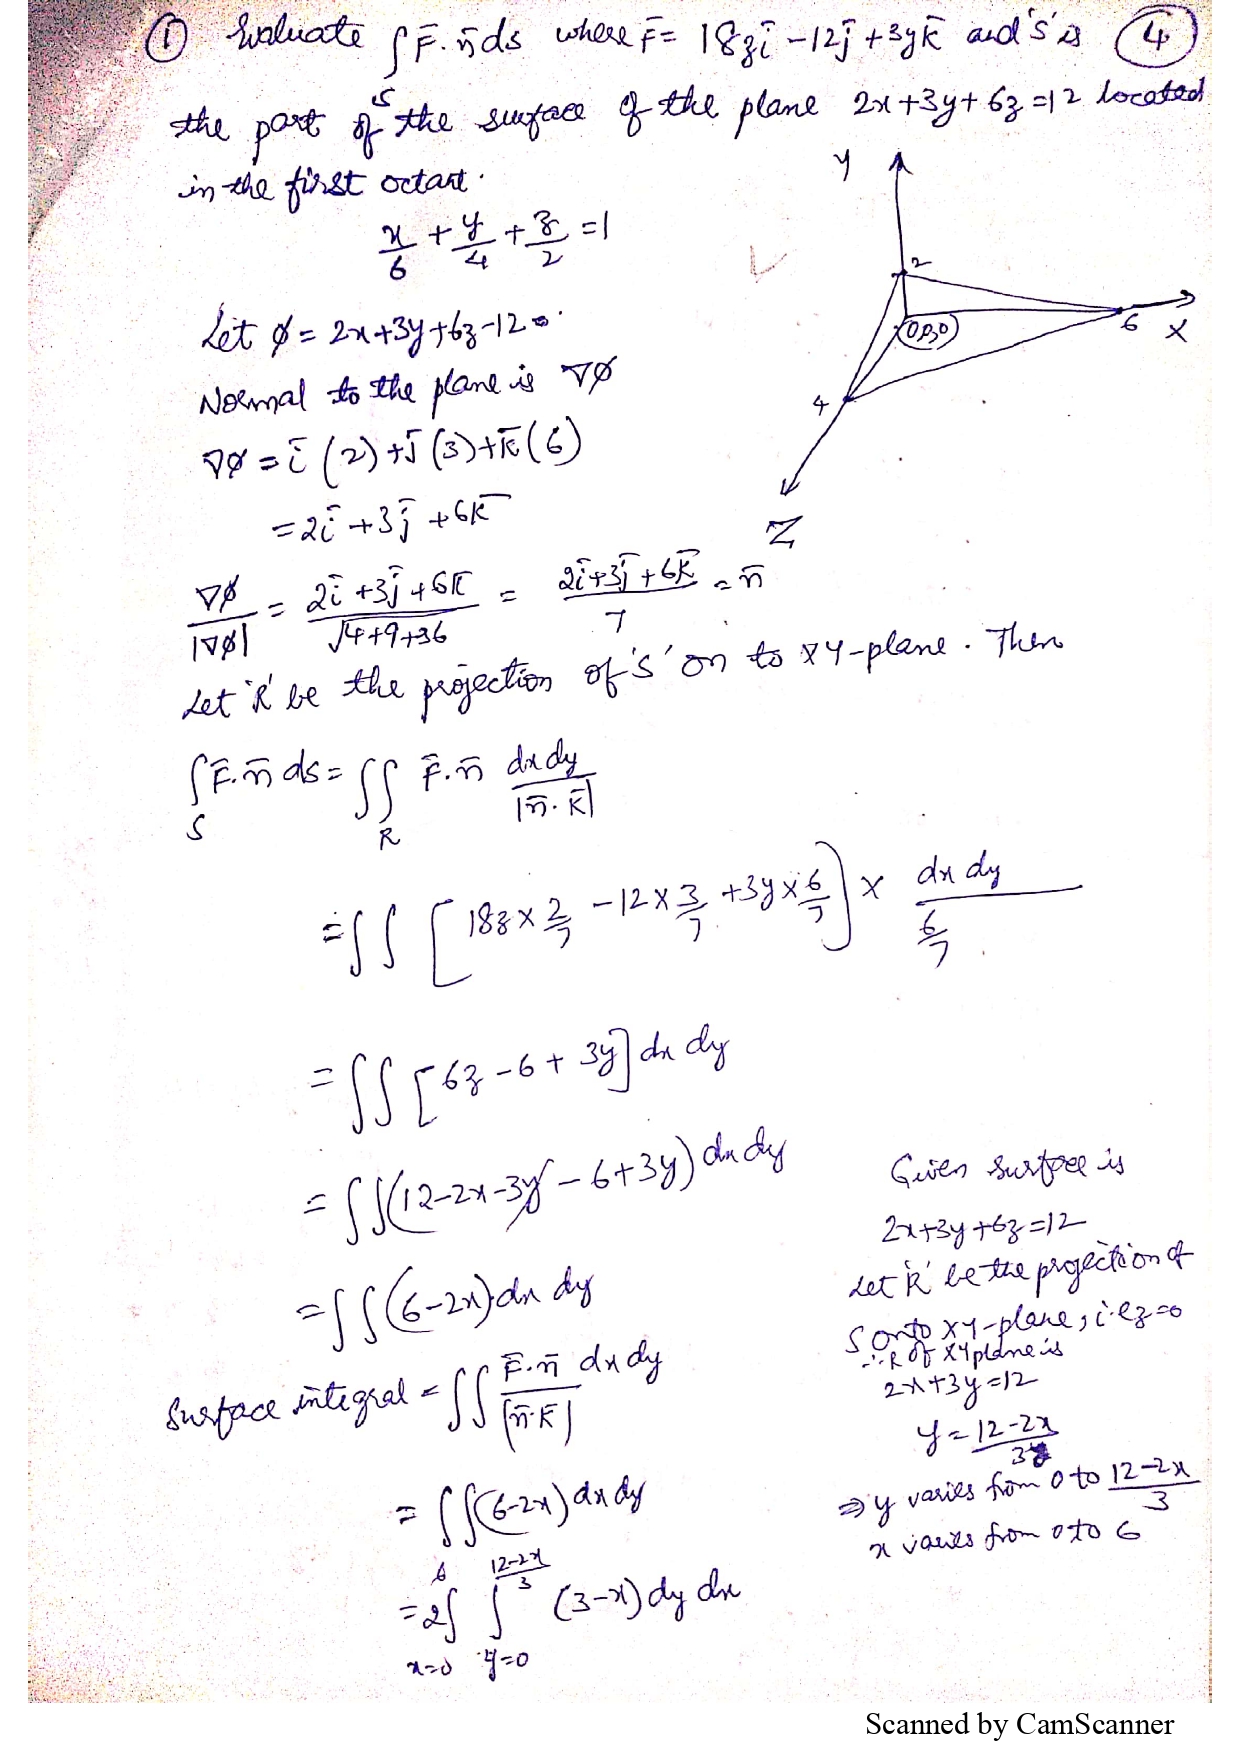 ① Evaluate ∫ F̄.n̄ ds where F̄ = 18z ī - 12 j̄ + 3y k̄ and 's' is ④
S
the part of the surface of the plane 2x+3y+6z=12 located
in the first octant.
x/6 + y/4 + z/2 = 1
Y
2
(0,0,0)
6 X
4
Z
Let φ = 2x+3y+6z-12
Normal to the plane is ∇φ
∇φ = ī (2) + j̄ (3) + k̄ (6)
= 2ī + 3j̄ + 6k̄
∇φ/|∇φ| = (2ī + 3j̄ + 6k̄)/√(4+9+36) = (2ī+3j̄+6k̄)/7 = n̄
Let 'R' be the projection of 's' on to XY-plane. Then
∫_S F̄.n̄ ds = ∫∫_R F̄.n̄ dxdy/|n̄.k̄|
= ∫∫ [18z × 2/7 - 12 × 3/7 + 3y × 6/7] × dx dy/(6/7)
= ∫∫ [6z - 6 + 3y] dx dy
= ∫∫ (12-2x-3y - 6+3y) dx dy
= ∫∫ (6-2x) dx dy
Surface integral = ∫∫ F̄.n̄ dxdy/|n̄.k̄|
= ∫∫ (6-2x) dx dy
= 2 ∫_{x=0}^{6} ∫_{y=0}^{(12-2x)/3} (3-x) dy dx
Given surface is
2x+3y+6z=12
Let 'R' be the projection of
S onto XY-plane, i.e z=0
∴ R of XY plane is
2x+3y=12
y = (12-2x)/3
⇒ y varies from 0 to (12-2x)/3
x varies from 0 to 6
Scanned by CamScanner